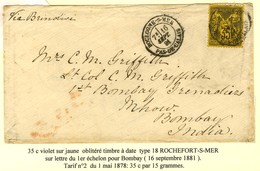 Via Brindisi
BOULOGNE-S-MER
PAS-DE-CALAIS
Mrs C. M. Griffith
Lt Col C. M. Griffith
1st Bombay Grenadiers
Mhow
Bombay
India
35 c violet sur jaune oblitéré timbre à date type 18 ROCHEFORT-S-MER
sur lettre du 1er échelon pour Bombay ( 16 septembre 1881 ).
Tarif n°2 du 1 mai 1878: 35 c par 15 grammes.